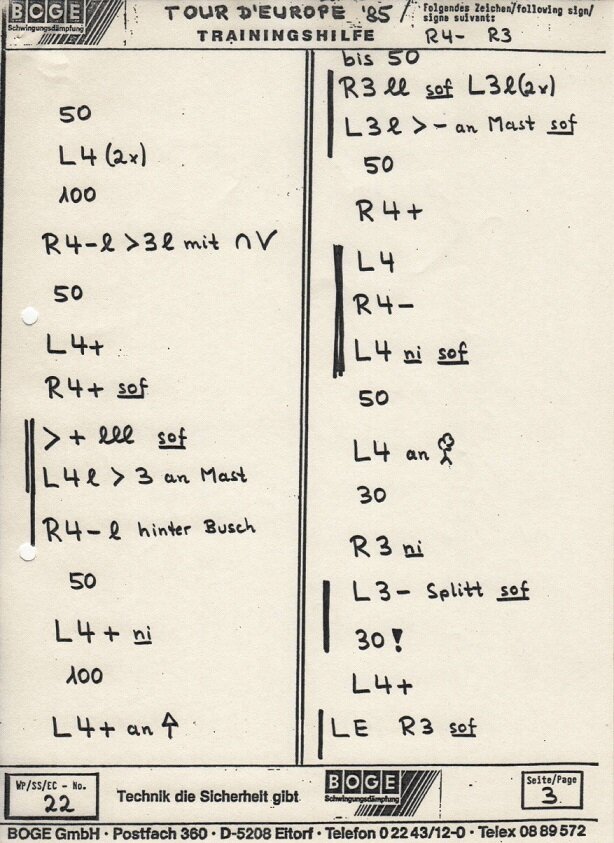 BOGE
Schwingungsdämpfung
TOUR D'EUROPE '85
TRAININGSHILFE
Folgendes Zeichen/following sign/
signe suivant:
R4- R3
50
L4 (2x)
100
R4-l >3l mit ∩V
50
L4+
R4+ sof
>+ lll sof
L4l > 3 an Mast
R4-l hinter Busch
50
L4+ ni
100
L4+ an
bis 50
R3 ll sof L3l(2x)
L3l >- an Mast sof
50
R4+
L4
R4-
L4 ni sof
50
L4 an
30
R3 ni
L3- Splitt sof
30!
L4+
LE R3 sof
WP/SS/EC - No.
22
Technik die Sicherheit gibt
BOGE
Schwingungsdämpfung
Seite/Page
3
BOGE GmbH · Postfach 360 · D-5208 Eitorf · Telefon 0 22 43/12-0 · Telex 08 89 572